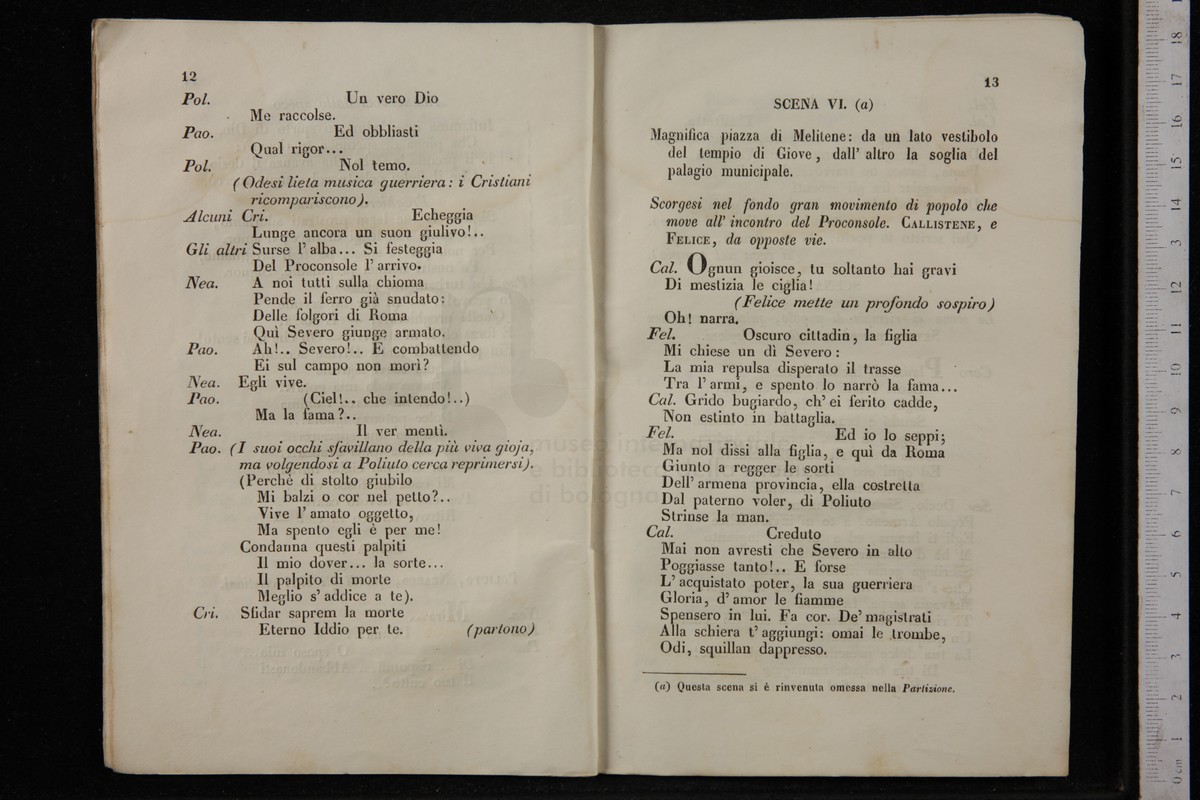 12
Pol. Un vero Dio
Me raccolse.
Pao. Ed obbliasti
Qual rigor...
Pol. Nol temo.
(Odesi lieta musica guerriera: i Cristiani
ricompariscono).
Alcuni Cri. Echeggia
Lunge ancora un suon giulivo!..
Gli altri Surse l'alba... Si festeggia
Del Proconsole l'arrivo.
Nea. A noi tutti sulla chioma
Pende il ferro già snudato:
Delle folgori di Roma
Quì Severo giunge armato.
Pao. Ah!.. Severo!.. E combattendo
Ei sul campo non morì?
Nea. Egli vive.
Pao. (Ciel!.. che intendo!..)
Ma la fama?..
Nea. Il ver mentì.
Pao. (I suoi occhi sfavillano della più viva gioja,
ma volgendosi a Poliuto cerca reprimersi).
(Perchè di stolto giubilo
Mi balzi o cor nel petto?..
Vive l'amato oggetto,
Ma spento egli è per me!
Condanna questi palpiti
Il mio dover... la sorte...
Il palpito di morte
Meglio s'addice a te).
Cri. Sfidar saprem la morte
Eterno Iddio per te. (partono)
13
SCENA VI. (a)
Magnifica piazza di Melitene: da un lato vestibolo
del tempio di Giove, dall'altro la soglia del
palagio municipale.
Scorgesi nel fondo gran movimento di popolo che
move all'incontro del Proconsole. CALLISTENE, e
FELICE, da opposte vie.
Cal. Ognun gioisce, tu soltanto hai gravi
Di mestizia le ciglia!
(Felice mette un profondo sospiro)
Oh! narra.
Fel. Oscuro cittadin, la figlia
Mi chiese un dì Severo:
La mia repulsa disperato il trasse
Tra l'armi, e spento lo narrò la fama...
Cal. Grido bugiardo, ch'ei ferito cadde,
Non estinto in battaglia.
Fel. Ed io lo seppi;
Ma nol dissi alla figlia, e quì da Roma
Giunto a regger le sorti
Dell'armena provincia, ella costretta
Dal paterno voler, di Poliuto
Strinse la man.
Cal. Creduto
Mai non avresti che Severo in alto
Poggiasse tanto!.. E forse
L'acquistato poter, la sua guerriera
Gloria, d'amor le fiamme
Spensero in lui. Fa cor. De'magistrati
Alla schiera t'aggiungi: omai le trombe,
Odi, squillan dappresso.
(a) Questa scena si è rinvenuta omessa nella Partizione.
0 cm 1 2 3 4 5 6 7 8 9 10 11 12 13 14 15 16 17 18